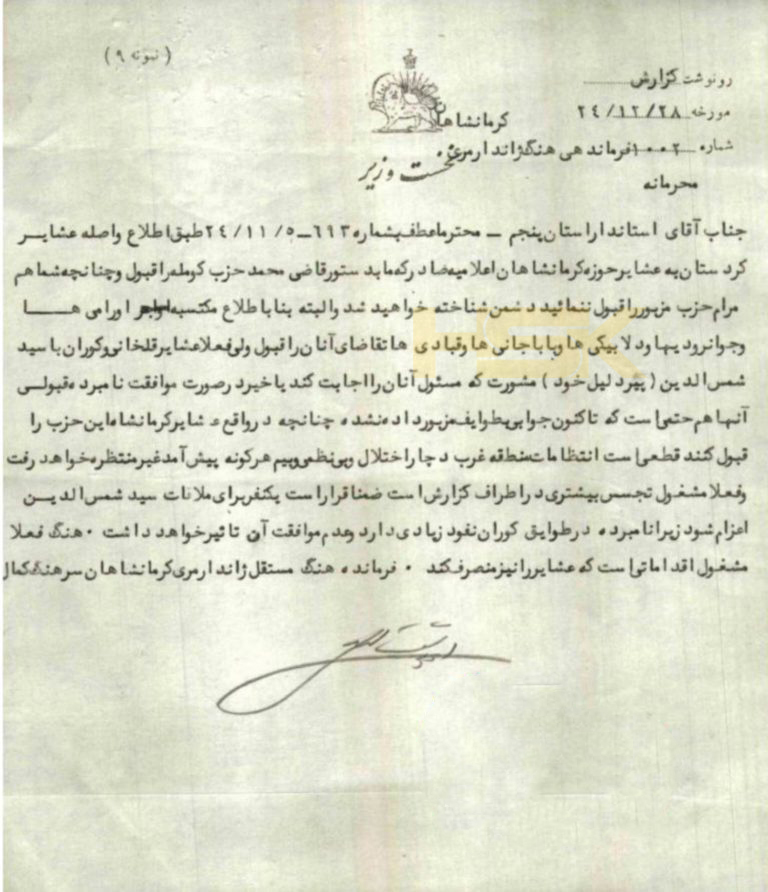 ( نمونه ۹ )
رونوشت گزارش
مورخه ۲۴/۱۲/۲۸
کرمانشاهان
شماره ۱۰۰۲ فرماندهی هنگ ژاندارمری
نخست وزیر
محرمانه
جناب آقای استاندار استان پنجم ــ محترما عطف بشماره ۶۹۳ــ۲۴/۱۱/۵ طبق اطلاع واصله عشایر
کردستان به عشایر حوزه کرمانشاهان اعلامیه صادر که ما بدستور قاضی محمد حزب کومله را قبول وچنانچه شما هم
مرام حزب مزبور را قبول ننمائید دشمن شناخته خواهید شد والبته بنا باطلاع مکتسبه اورامی هــا
وجوانرودیها ودلابیکی ها وباباجانی ها وقبادی ها تقاضای آنان را قبول ولی فعلا عشایر قلخانی وکوران با سید
شمس الدین ( پیرد لیل خود ) مشورت که مسئول آنان را اجابت کند یا خیر در صورت موافقت نامبرده قبولی
آنها هم حتمی است که تاکنون جوابی بطوایف مزبور داده نشده چنانچه در واقع عشایر کرمانشاه این حزب را
قبول کنند قطعی است انتظامات منطقه غرب دچار اختلال وبی نظمی وبیم هرگونه پیش آمد غیر منتظره خواهد رفت
وفعلا مشغول تجسس بیشتری در اطراف گزارش است ضمنا قرار است یکنفر برای ملاقات سید شمس الدین
اعزام شود زیرا نامبرده در طوایق کوران نفوذ زیادی دارد وعدم موافقت آن تاثیر خواهد داشت ۰ هنگ فعلا
مشغول اقداماتی است که عشایر را نیز منصرف کند ۰ فرمانده هنگ مستقل ژاندارمری کرمانشاهان سرهنگ کمال